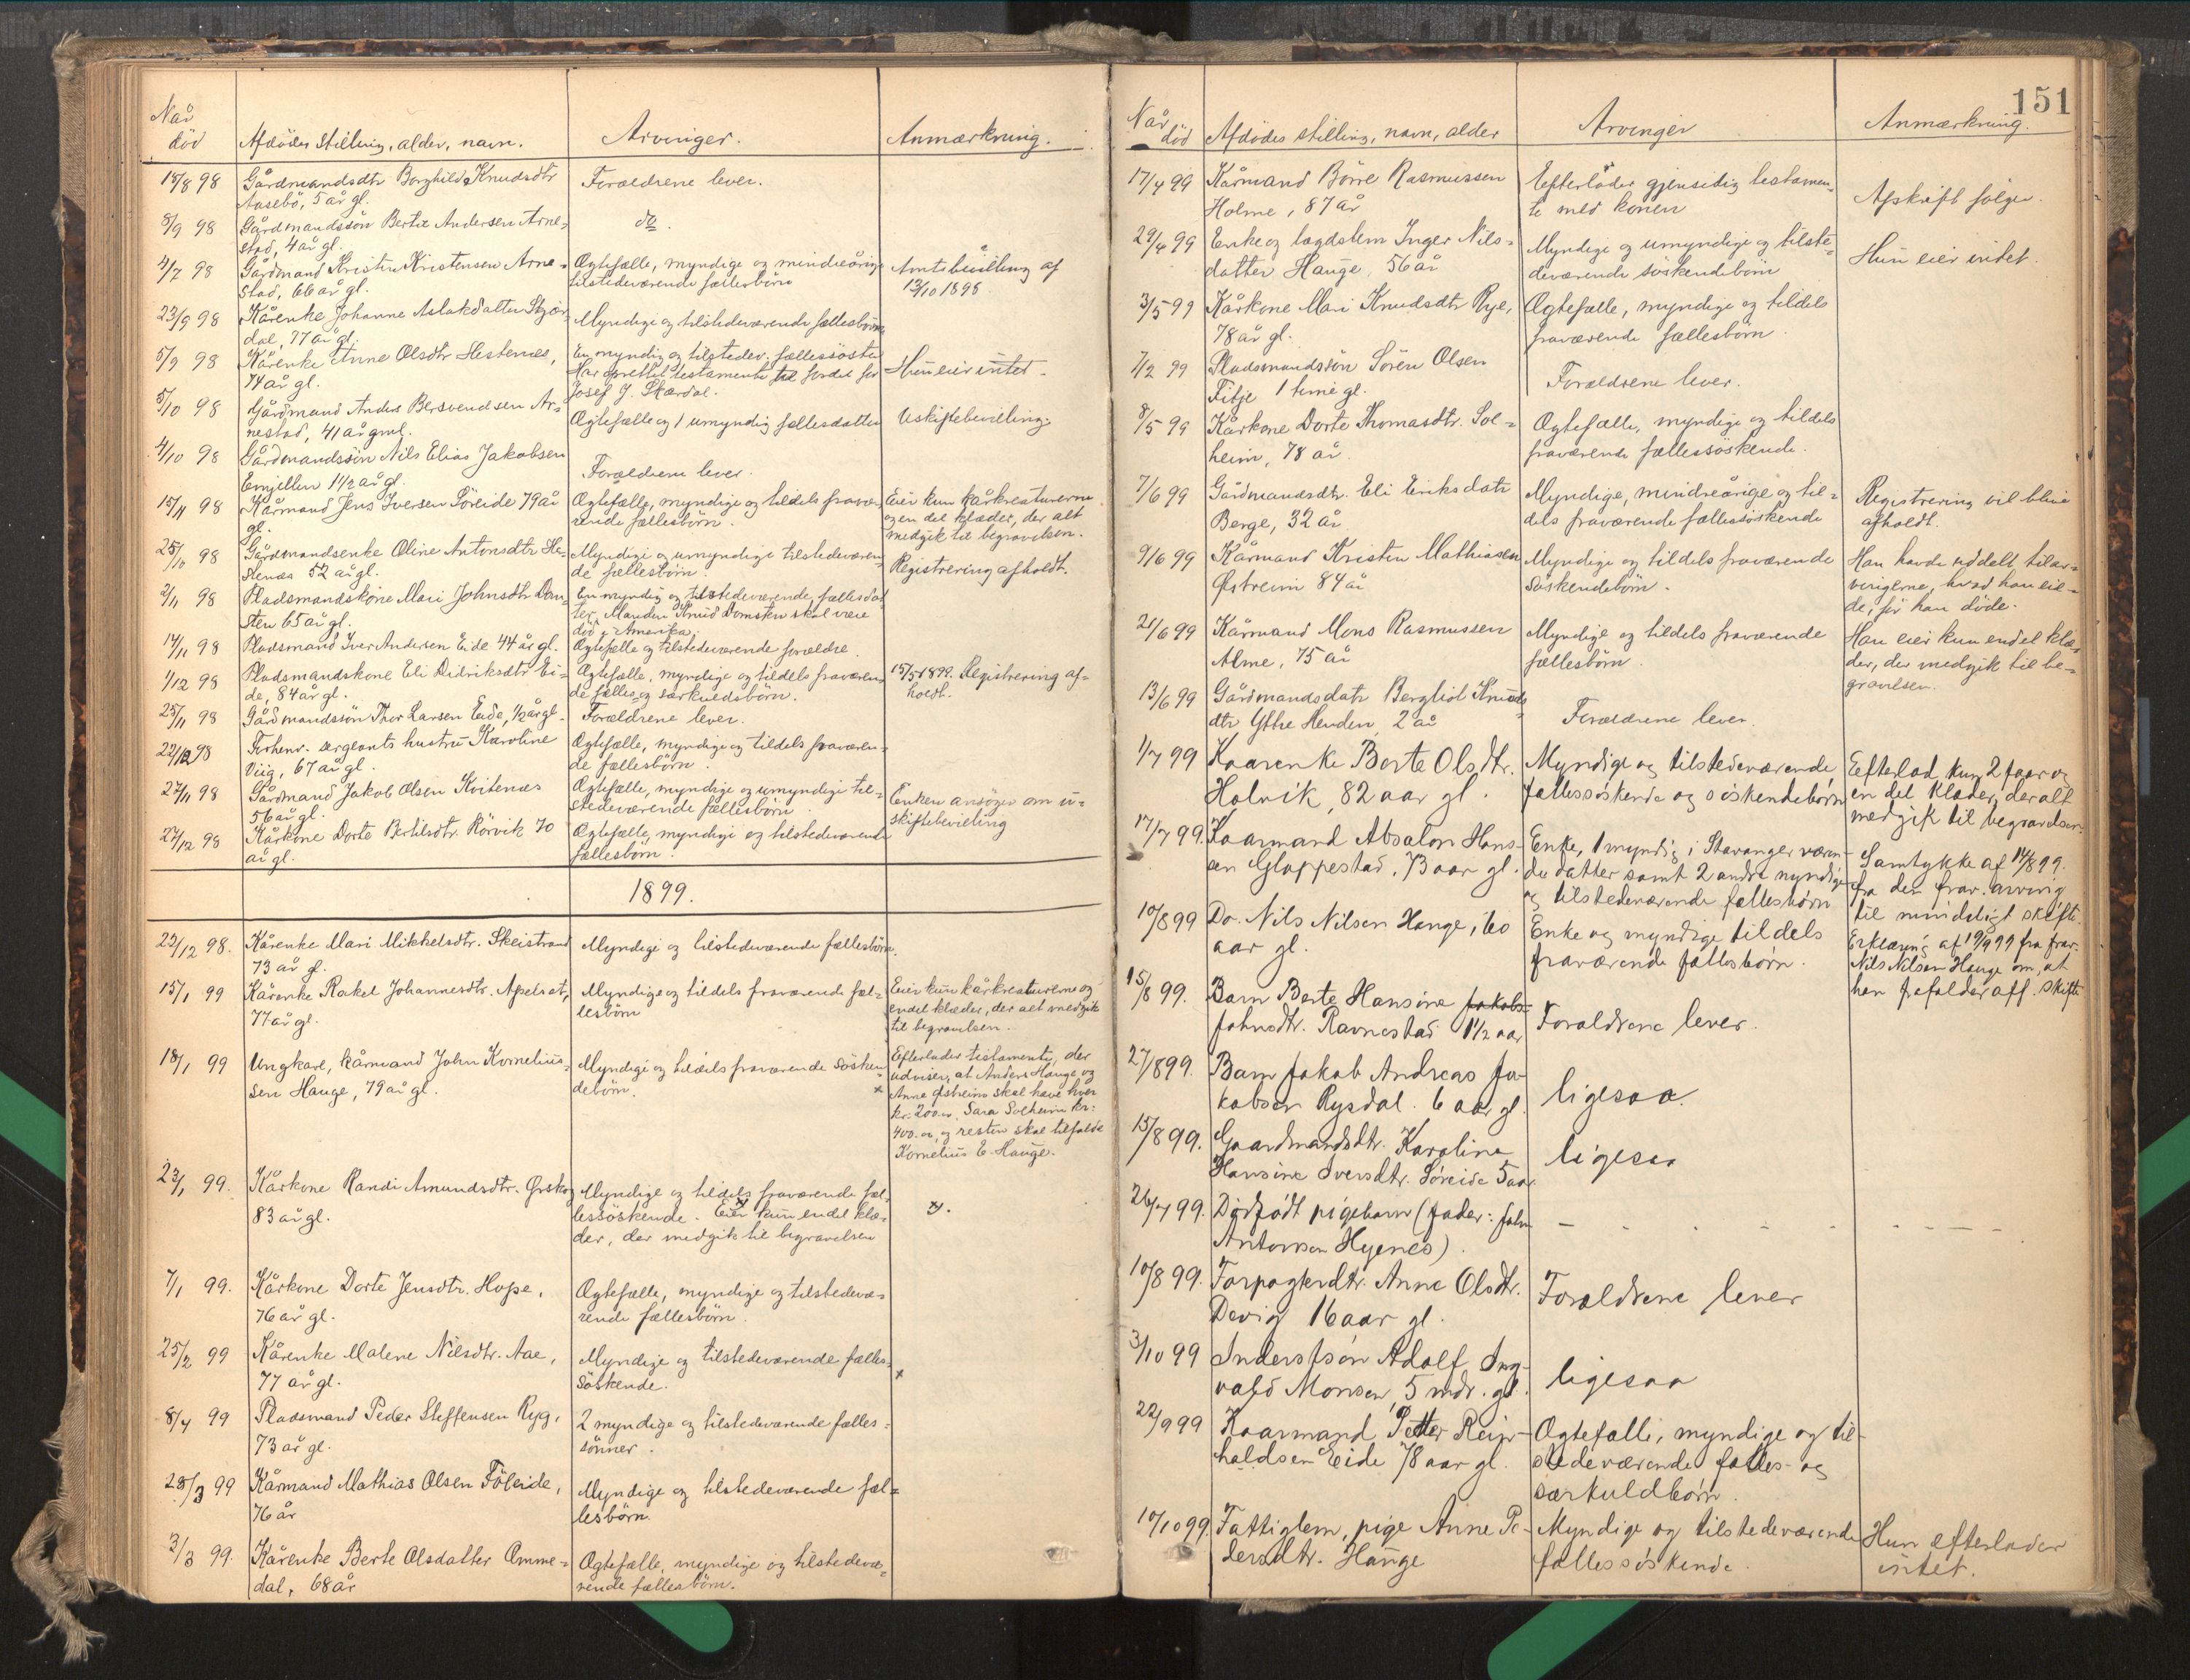 Når
död
Afdödes Stilling, alder, navn.
Arvinger.
Anmærkning.
15/8 98 Gårdmandsdtr Borghild Knudsdtr Forældrene lever.
Aasebö, 5 år gl.
8/9 98 Gårdmandssön Bertil Andersen Arne= do.
stad, 4 år gl.
4/7 98 Gårdmand Kristen Kristensen Arne= Ægtefælle, myndige og mindreårige Amtsbevilling af
stad, 66 år gl. tilstedeværende fællesbörn 13/10 1898
23/9 98 Kårenke Johanne Aslakdatter Skjær= Myndige og tilstedeværende fællesbörn
dal, 77 år gl.
5/9 98 Kårenke Anne Olsdtr Hestenes, En myndig og tilstedev. fællessöster Hun eier intet.
74 år gl. Har oprettet testamente til fordel for
Josef J. Skærdal.
5/10 98 Gårdmand Anders Bersvendsen Ar= Ægtefælle og 1 umyndig fællesdatter Uskiftebevilling
nestad, 41 år gml.
4/10 98 Gårdmandssön Nils Elias Jakobsen Forældrene lever.
Emjellen 1 1/2 år gl.
15/11 98 Kårmand Jens Iversen Söreide 79 år Ægtefælle, myndige og tildels fravæ= Eier kun kårkreaturerne
gl. rende fællesbörn. og en del klæder, der alt
medgik til begravelsen.
25/10 98 Gårdmandsenke Oline Antonsdtr He= Myndige og umyndige tilstedeværen= Registrering afholdt.
stenæs 52 år gl. de fællesbörn.
2/11 98 Pladsmandskone Mari Johnsdtr Dom= En myndig og tilstedeværende fællesdat
sten 65 år gl. ter. Manden Knud Domsten skal være
död i Amerika.
14/11 98 Pladsmand Iver Andersen Eide 44 år gl. Ægtefælle og tilstedeværende forældre.
1/12 98 Pladsmandskone Eli Didriksdtr Ei= Ægtefælle, myndige og tildels fraværen= 15/5 1899. Registrering af=
de, 84 år gl. de fælles og særkuldsbörn. holdt.
25/11 98 Gårdmandssön Thor Larsen Eide, 1/2 år gl. Forældrene lever.
22/12 98 Forhenv. sergeants hustru Karoline Ægtefælle, myndige og tildels fraværen=
Viig, 67 år gl. de fællesbörn.
27/11 98 Gårdmand Jakob Olsen Kvitenæs Ægtefælle, myndige og umyndige til= Enken ansöger om u=
56 år gl. stedeværende fællesbörn skiftebevilling
27/12 98 Kårkone Dorte Bertilsdtr. Rörvik 70 Ægtefælle, myndige og tilstedeværende
år gl. fællesbörn.
1899.
22/12 98. Kårenke Mari Mikkelsdtr. Skeistrand Myndige og tilstedeværende fællesbörn.
73 år gl.
15/1 99 Kårenke Rakel Johannesdtr. Apelset, Myndige og tildels fraværende fæl= Eier kun kårkreaturerne og
77 år gl. lesbörn endel klæder, der alt medgik
til begravelsen.
18/1 99 Ungkarl, kårmand John Kornelius= Myndige og tildels fraværende sösken= Efterlader testamente, der
sen Hauge, 79 år gl. debörn. udviser, at Anders Hauge og
Anne Østreim skal have hver
kr. 200.00, Sara Solheim kr:
400.00, og resten skal tilfalde
Kornelius E. Hauge.
23/1 99. Kårkone Randi Amundsdtr. Ørskog Myndige og tildels fraværende fæl=
83 år gl. lessöskende. Eier kun endel klæ=
der, der medgik til begravelsen
7/1 99. Kårkone Dorte Jensdtr. Hope, Ægtefælle, myndige og tilstedevæ=
76 år gl. rende fællesbörn.
25/2 99 Kårenke Malene Nilsdtr. Aae, Myndige og tilstedeværende fælles=
77 år gl. söskende.
8/4 99 Pladsmand Peder Steffensen Ryg, 2 myndige og tilstedeværende fælles=
73 år gl. sönner.
28/3 99 Kårmand Mathias Olsen Föleide, Myndige og tilstedeværende fæl=
76 år lesbörn.
3/3 99. Kårenke Berte Olsdatter Omme= Ægtefælle, myndige og tilstedevæ=
dal, 68 år rende fællesbörn.
151
Når
död
Afdödes stilling, navn, alder
Arvinger
Anmærkning.
17/4 99 Kårmand Börre Rasmussen Efterlader gjensidig testamen= Afskrift fölger.
Holme, 87 år te med konen
29/4 99 Enke og lægdslem Inger Nils= Myndige og umyndige og tilste= Hun eier intet.
datter Hauge, 56 år deværende söskendebörn
3/5 99 Kårkone Mari Knudsdtr Rye, Ægtefælle, myndige og tildels
78 år gl. fraværende fællesbörn.
7/2 99 Pladsmandssön Sören Olsen Forældrene lever.
Fitje 1 time gl.
8/5 99 Kårkone Dorte Thomasdtr. Sol= Ægtefælle, myndige og tildels
heim, 78 år. fraværende fællessöskende.
7/6 99 Gårdmandsdtr. Eli Eriksdatr Myndige, mindreårige og til= Registrering vil blive
Berge, 32 år dels fraværende fællessöskende afholdt.
9/6 99 Kårmand Kristen Mathiassen Myndige og tildels fraværende Han havde uddelt til ar=
Østreim 84 år söskendebörn. vingerne, hvad han eie=
de, för han döde.
21/6 99 Kårmand Mons Rasmussen Myndige og tildels fraværende Han eier kun endel klæ=
Alme, 75 år fællesbörn. der, der medgik til be=
gravelsen.
13/6 99 Gårdmandsdatr Bergliot Knuds Forældrene lever.
dtr Ytre Henden, 2 år
1/7 99 Kaarenke Berte Olsdtr. Myndige og tilstedeværende Efterlod kun 2 faar og
Holvik, 82 aar gl. fællessøskende og søskendebørn en del klæder, der alt
medgik til begravelsen.
17/7 99. Kaarmand Absalon Hans- Enke, 1 myndig i Stavanger væren- Samtykke af 14/8 99.
en Gloppestad, 73 aar gl. de datter samt 2 andre myndige fra den frav. arving
og tilstedeværende fællesbørn til mindeligt skifte.
10/8 99 Do. Nils Nilsen Hauge, 60 Enke og myndige tildels Erklæring af 19/9 99 fra frav.
aar gl. fraværende fællesbørn. Nils Nilsen Hauge om, at
han frafalder off. skifte
15/8 99. Barn Berte Hansine Jakobs- Forældrene lever.
Johnsdtr. Ravnestad 1 1/2 aar
27/8 99. Barn Jakob Andreas Ja- ligesaa.
kobsen Rysdal. 6 aar gl.
15/8 99. Gaardmandsdtr. Karoline ligesaa
Hansine Iversdtr. Søreide 5 aar
26/7 99. Dødfødt pigebarn (fader: John
Antonsen Hyenes).
10/8 99. Forpagterdtr. Anne Olsdtr. Forældrene lever
Devig 16 aar gl.
3/10 99 Inderstsøn Adolf Ing- ligesaa
vald Monsen, 5 mdr. gl.
22/9 99 Kaarmand Petter Rein- Ægtefælle, myndige og til-
holdsen Eide 78 aar gl. stedeværende fælles- og
særkuldbørn.
10/10 99. Fattiglem, pige Anne Pe- Myndige og tilstedeværende Hun efterlader
dersdtr. Hauge fællessøskende. intet.